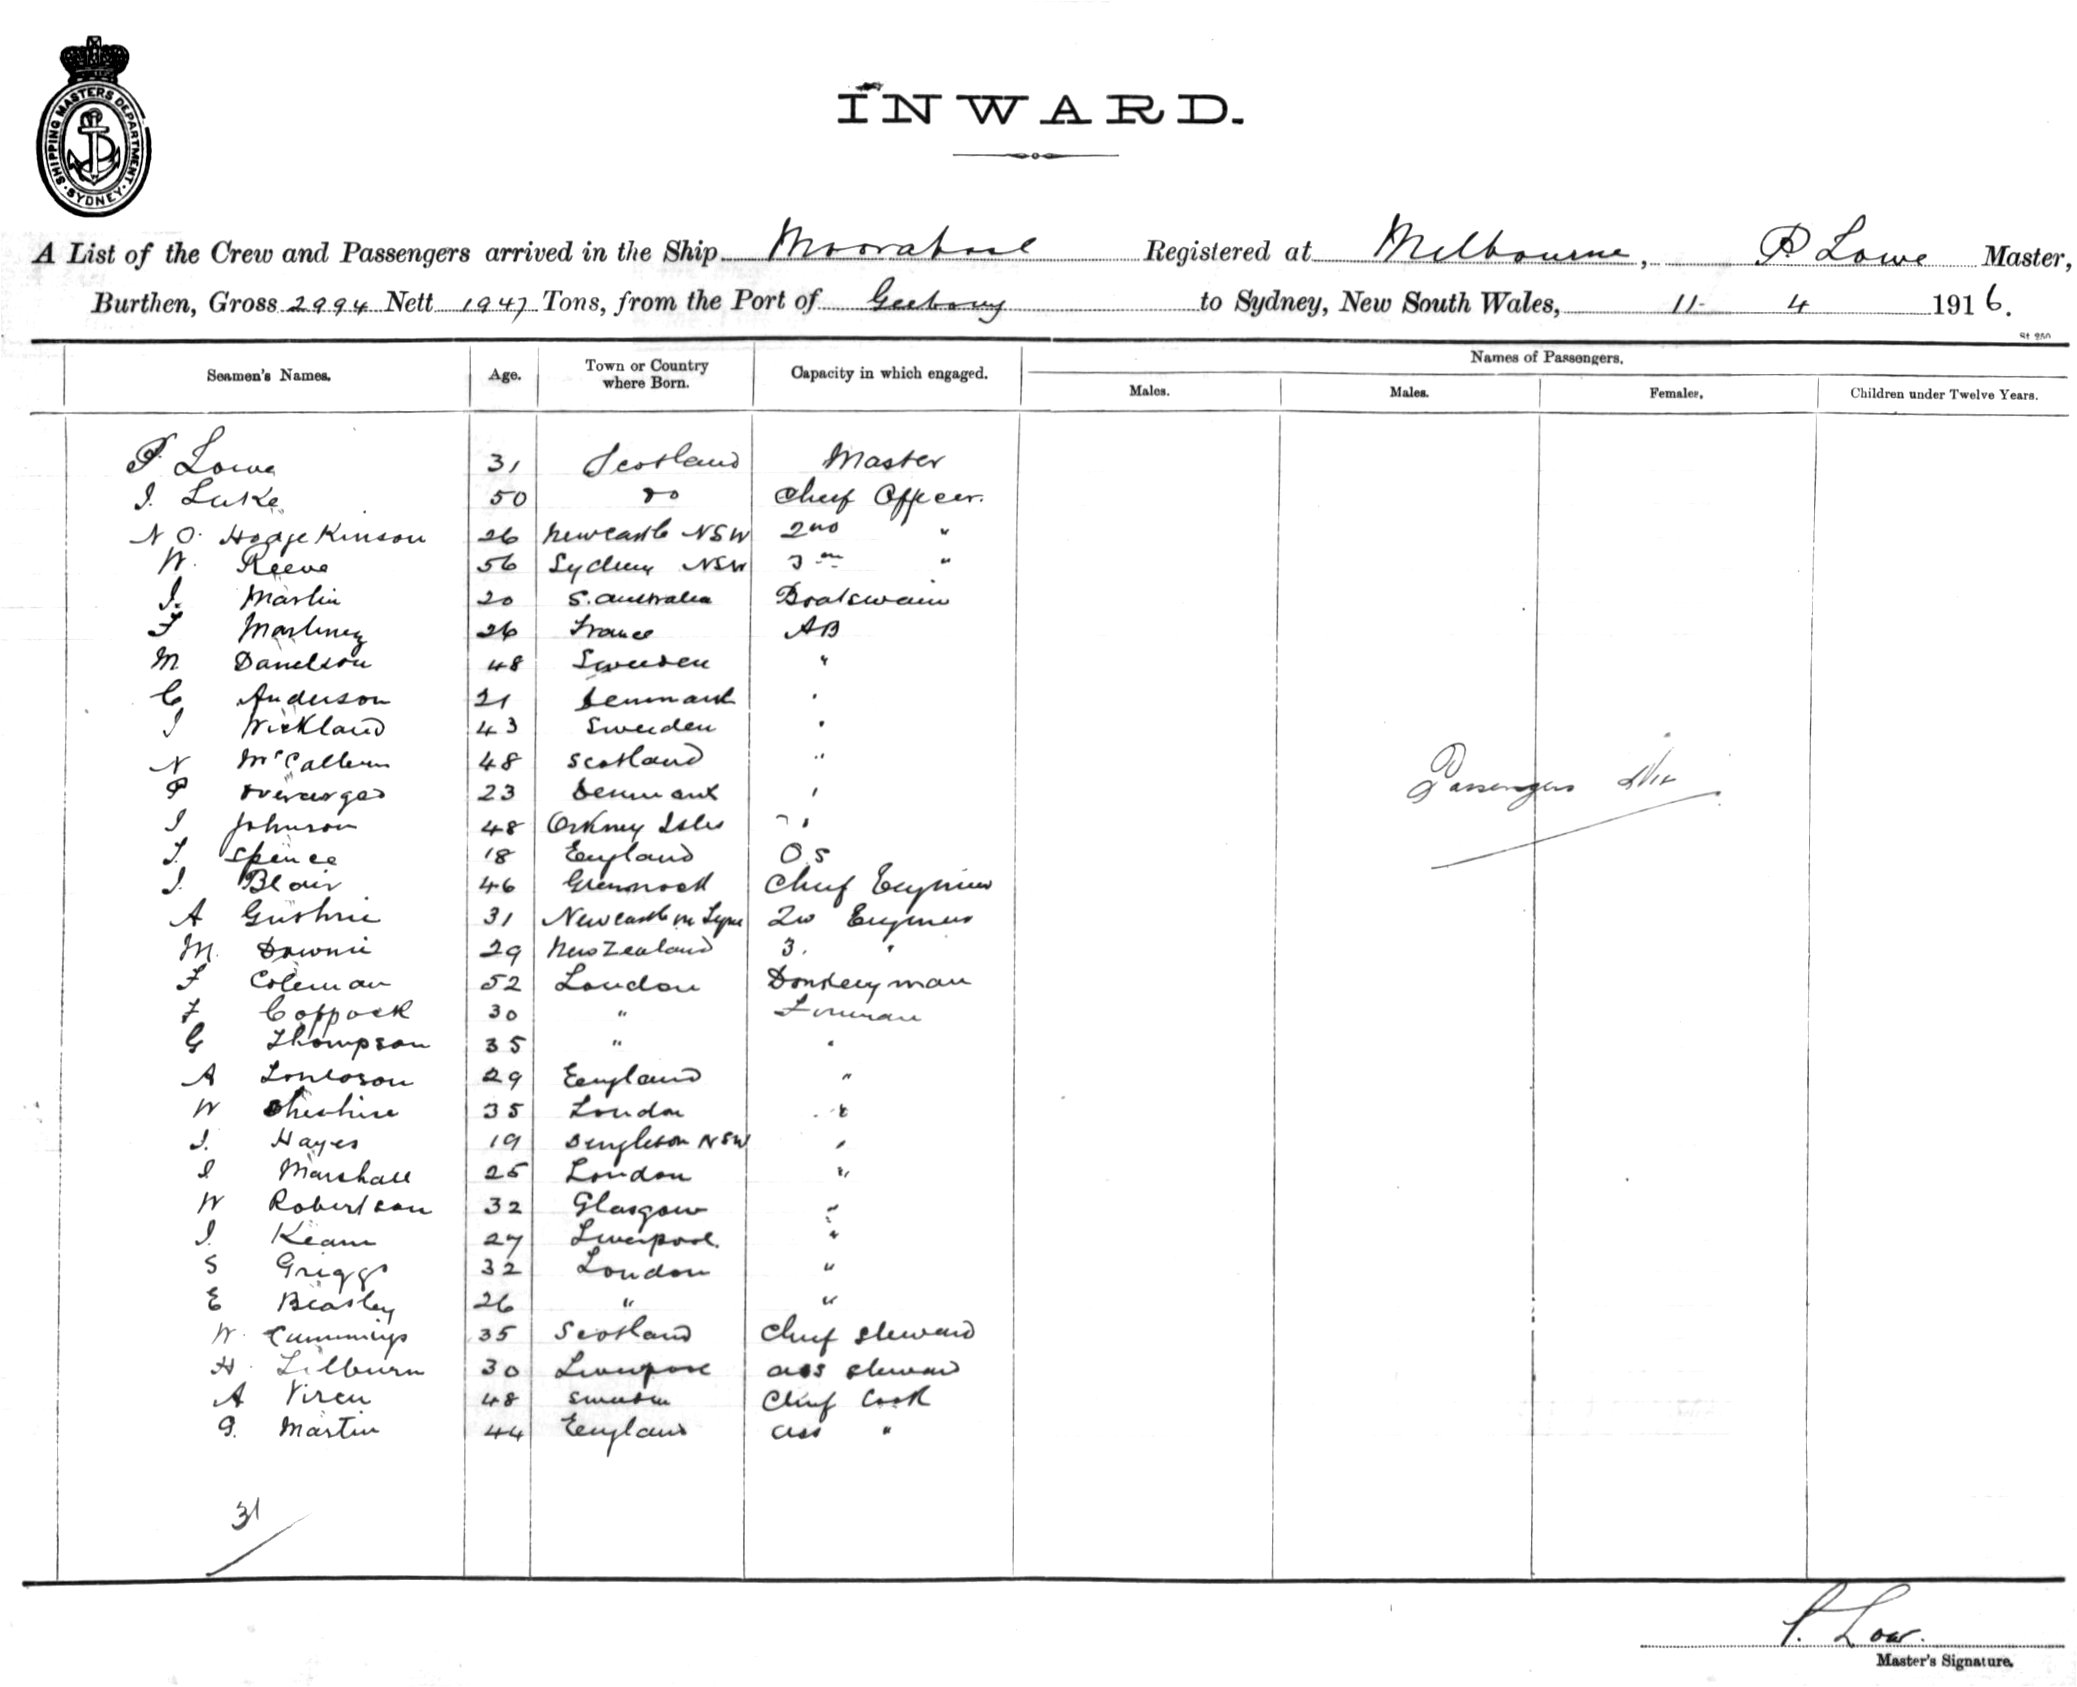 SHIPPING MASTERS DEPARTMENT · SYDNEY ·
INWARD.
A List of the Crew and Passengers arrived in the Ship Moorabool Registered at Melbourne, P Lowe Master,
Burthen, Gross 2994 Nett 1947 Tons, from the Port of Geelong to Sydney, New South Wales, 11- 4 1916.
St 250
Names of Passengers.
Seamen's Names. Age. Town or Country where Born. Capacity in which engaged. Males. Males. Females. Children under Twelve Years.
P. Lowe 31 Scotland Master
J. Luke 50 Do Chief Officer.
N O. Hodgekinson 26 Newcastle NSW 2nd "
W. Reeve 56 Sydney NSW 3rd "
J. Martin 20 S. Australia Boatswain
F Martinez 26 France AB
M Danelson 48 Sweden "
C Anderson 21 Denmark "
J Wickland 43 Sweden "
N McCallum 48 Scotland "
P 23 Denmark "
J Johnson 48 Orkney Isles "
J. Spence 18 England O.S
J. Blair 46 Greenock Chief Engineer
A Guthrie 31 Newcastle on Tyne 2nd Engineer
M. Downie 29 New Zealand 3. "
F Coleman 52 London Donkeyman
F Coppock 30 " Fireman
G Thompson 35 " "
A 29 England "
W Cheshire 35 London "
J. Hayes 19 Singleton NSW "
J Marshall 25 London "
W Robertson 32 Glasgow "
J. Keam 27 Liverpool. "
S Griggs 32 London "
E Beasley 26 " "
W. Cummings 35 Scotland Chief Steward
H. Lilburn 30 Liverpool ass Steward
A Viren 48 Sweden Chief Cook
G. Martin 44 England ass "
Passengers Nil
31
P. Low.
Master's Signature.